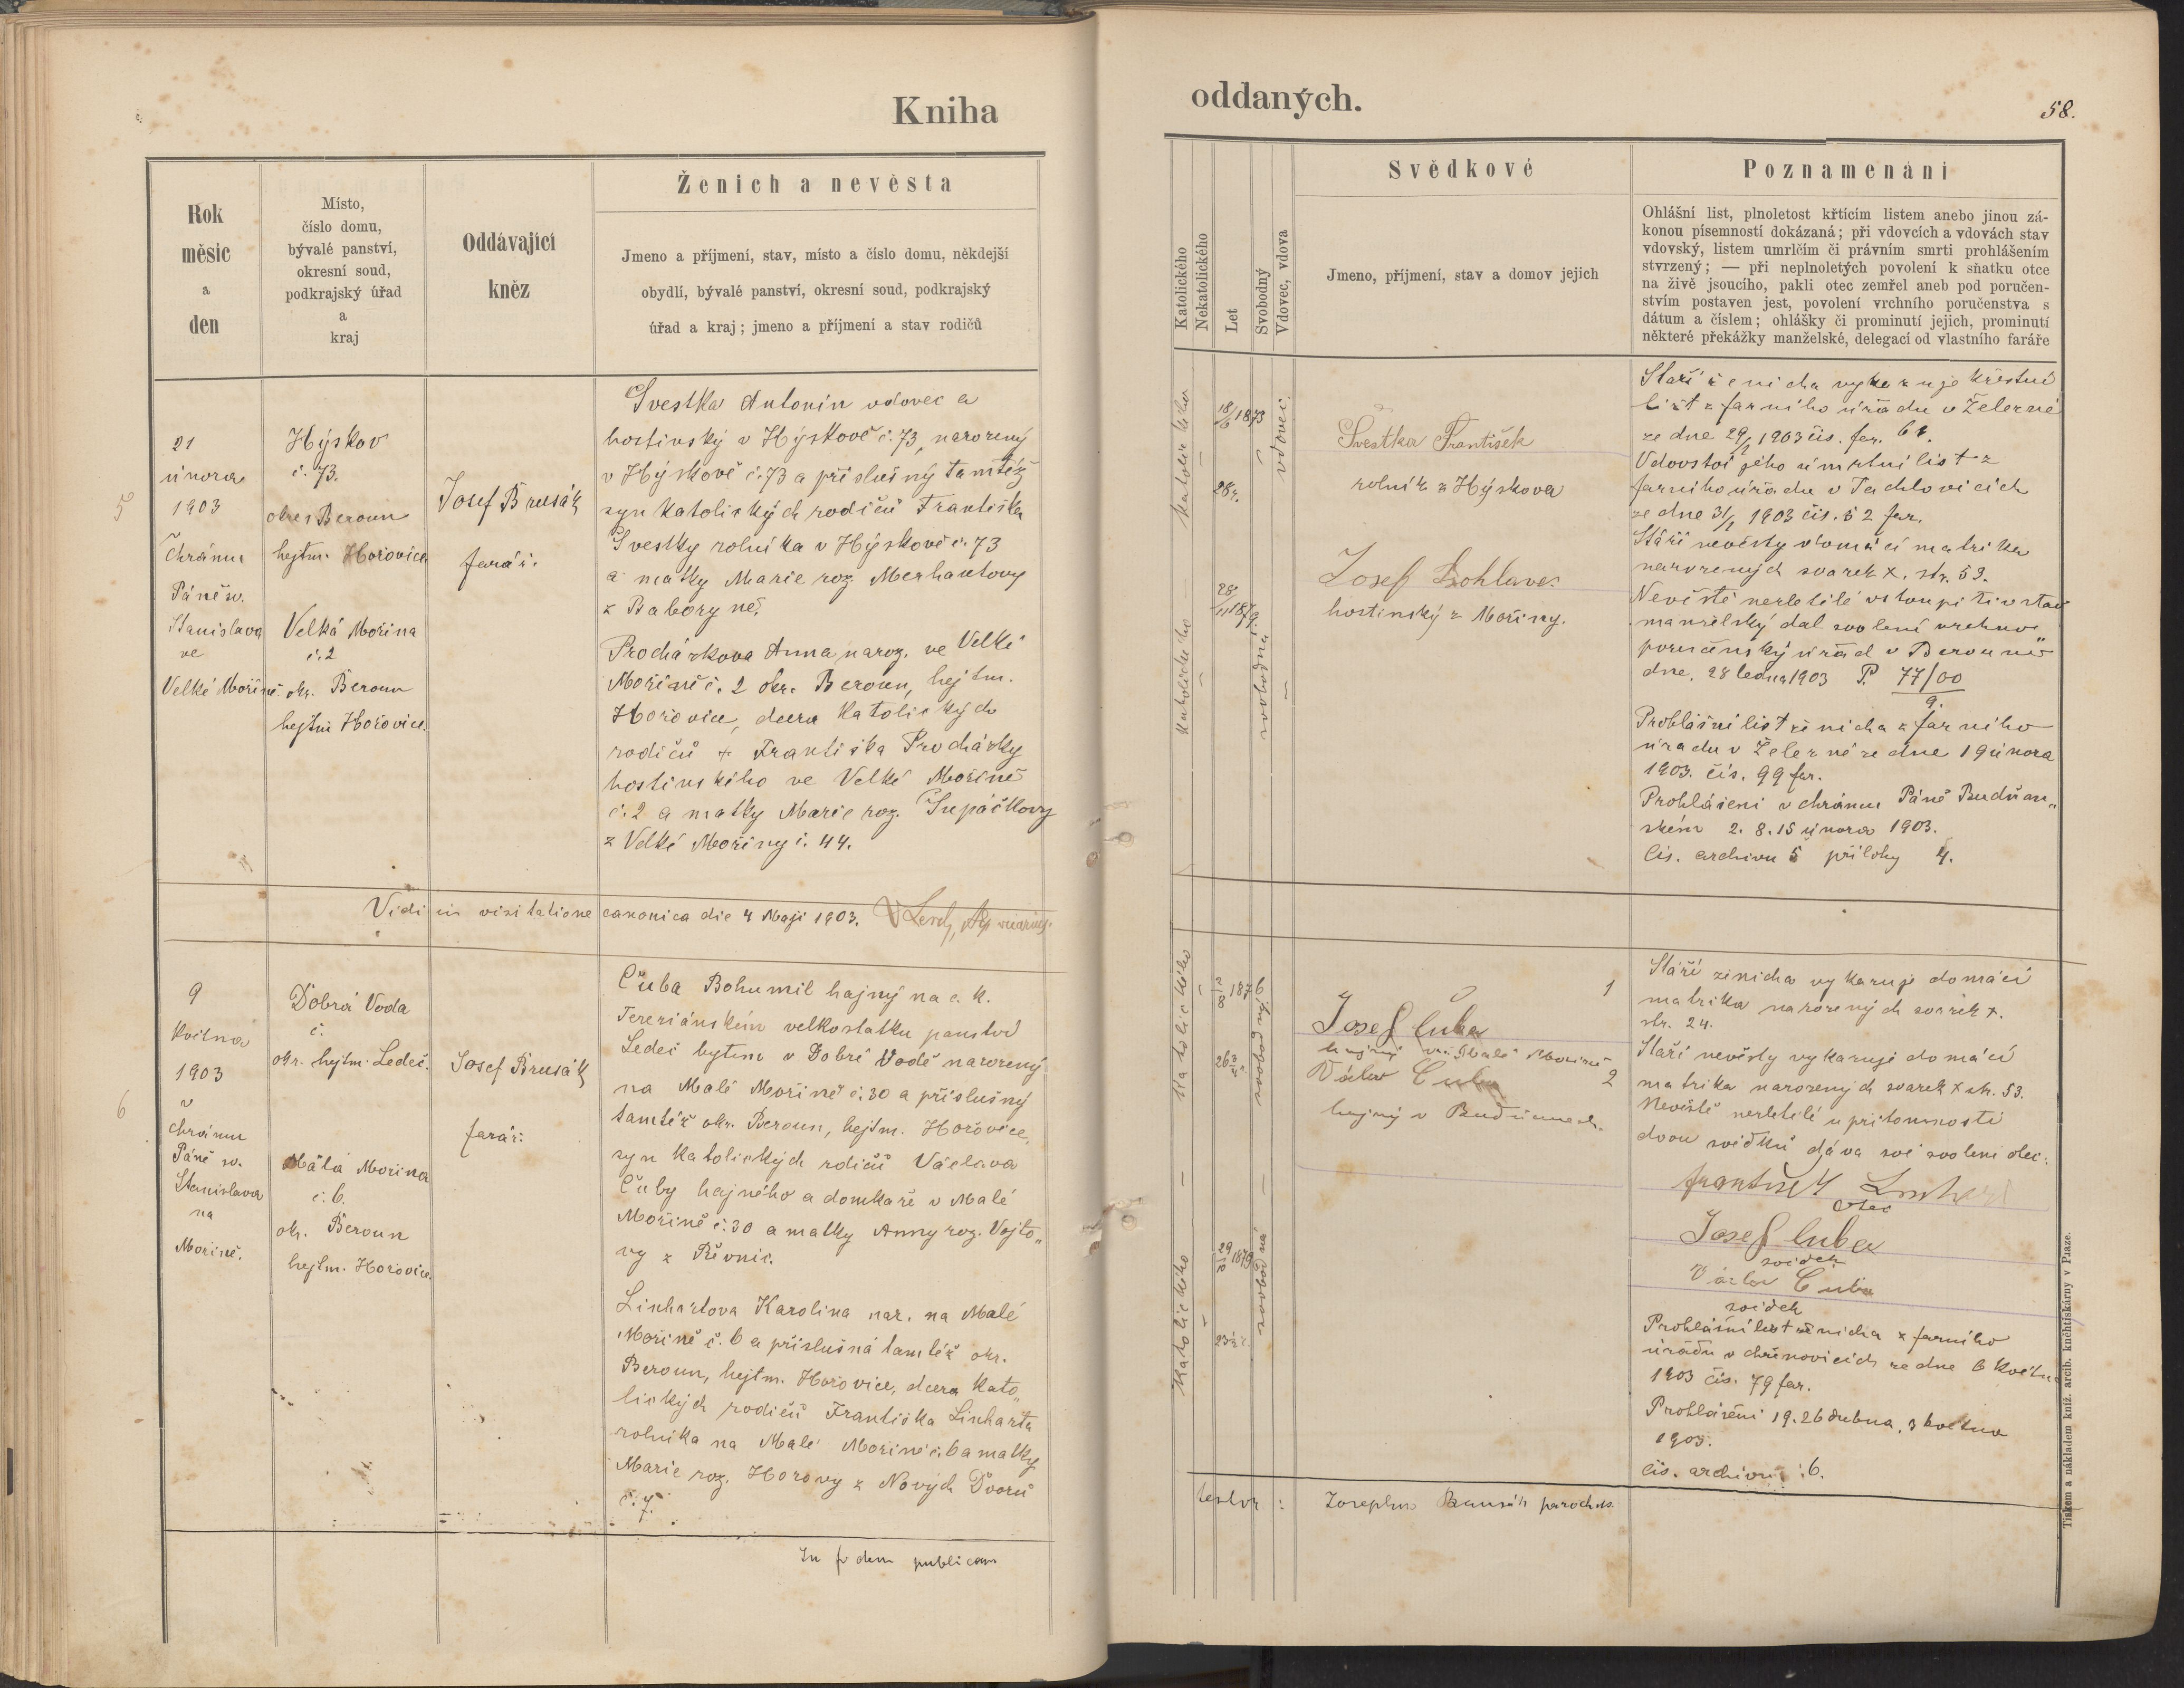 Kniha
Rok
měsíc
a
den
Místo,
číslo domu,
bývalé panství,
okresní soud,
podkrajský úřad
a
kraj
Oddávající
kněz
Ženich a nevěsta
Jmeno a příjmení, stav, místo a číslo domu, někdejší
obydlí, bývalé panství, okresní soud, podkrajský
úřad a kraj; jmeno a příjmení a stav rodičů
5
21
února
1903
v
chrámu
Páně sv.
Stanislava
ve
Velké Mořině
Hýskov
č. 73.
okres Beroun
hejtm. Hořovice
Velká Mořina
č. 2
okr. Beroun
hejtm Hořovice.
Josef Brusák
farář.
Švestka Antonín vdovec a
hostinský v Hýskově č. 73, narozený
v Hýskově č. 73 a příslušný tamtéž
syn katolických rodičů Františka
Švestky rolníka v Hýskově č. 73
a matky Marie roz. Merhautovy
z Babory ně.
Procházkova Anna naroz. ve Velké
Mořině č. 2 okr. Beroun, hejtm.
Hořovice, dcera katolických
rodičů + Františka Procházky
hostinského ve Velké Mořině
č. 2 a matky Marie roz. Šupáčkovy
z Velké Mořiny č. 44.
Vidi in visitatione canonica die 4 Maji 1903.
6
9
května
1903
v
chrámu
Páně sv.
Stanislava
na
Mořině.
Dobrá Voda
č.
okr. hejtm. Ledeč.
Malá Mořina
č. 6.
okr. Beroun
hejtm. Hořovice.
Josef Brusák
farář.
Čuba Bohumil hajný na c. k.
Tereziánském velkostatku panství
Ledeč bytem v Dobré Vodě narozený
na Malé Mořině č. 30 a příslušný
tamtéž okr. Beroun, hejtm. Hořovice,
syn katolických rdičů Václava
Čuby hajného a domkaře v Malé
Mořině č. 30 a matky Anny roz. Vojto„
vy z Řevnic.
Linhartova Karolina nar. na Malé
Mořině č. 6 a příslušná tamtéž okr.
Beroun, hejtm. Hořovice, dcera kato„
lických rodičů Františka Linharta
rolníka na Malé Mořině č. 6 a matky
Marie roz. Horovy z Nových Dvorů
č. 7.
In fidem publicam
oddaných.
58.
Katolického
Nekatolického
Let
Svobodný
Vdovec, vdova
Svědkové
Jmeno, příjmení, stav a domov jejich
Poznamenání
Ohlášní list, plnoletost křtícím listem anebo jinou zá-
konou písemností dokázaná; při vdovcích a vdovách stav
vdovský, listem umrlčím či právním smrti prohlášením
stvrzený; — při neplnoletých povolení k sňatku otce
na živě jsoucího, pakli otec zemřel aneb pod poručen-
stvím postaven jest, povolení vrchního poručenstva s
dátum a číslem; ohlášky či prominutí jejich, prominutí
některé překážky manželské, delegací od vlastního faráře
katolického
18/6 1873
28 r.
vdovec
katolického
28/11 1879
svobodná
Švestka František
rolník z Hýskova
Josef
hostinský z Mořiny.
Stáří ženicha vykazuje křestní
list z farního úřadu v Železné
ze dne 29/1 1903 čís. far. 61.
Vdovství jeho úmrtní list z
farního úřadu v Tachlovicích
ze dne 31/1 1903 čís. 52 far.
Stáří nevěsty domácí matrika
narozených svazek X. str. 53.
Nevěstě nezletilé vstoupiti v stav
manželský dal svolení vrchno„
poručenský úřad v Berouně
dne. 28 ledna 1903 P. 77/00
9.
Prohlášní list ženicha z farního
úřadu v Železné ze dne 19 února
1903. čís. 99 far.
Prohlášeni v chrámu Páně Budňan„
ském 2. 8. 15 února 1903.
čís. archivu 5 přílohy 4.
katolického
2/8 1876
26 3/4
svobodný
katolického
29/10 1879
svobodná
1
Josef Čuba
hajný na Malé Mořině
2
Václav Čuba
hajný v Budňanech.
Stáří ženicha vykazuje domácí
matrika narozených svazek X.
str. 24.
Stáří nevěsty vykazuje domácí
matrika narozených svazek X str. 53.
Nevěstě nezletilé u přítomnosti
dvou svědků dáva své svolení otec:
František Linhart
otec
Josef Čuba
svědek
Václav Čuba
svědek
Prohlášní list ženicha z farního
úřadu v Chřenovicích ze dne 6 květn
1903 čís. 79 far.
Prohlášeni 19. 26 dubna, 3 května
1903.
čís. archivu 6.
testor :
Josephus Brusák parochus.
Tiskem a nákladem kníž. arcib. knihtiskárny v Praze.